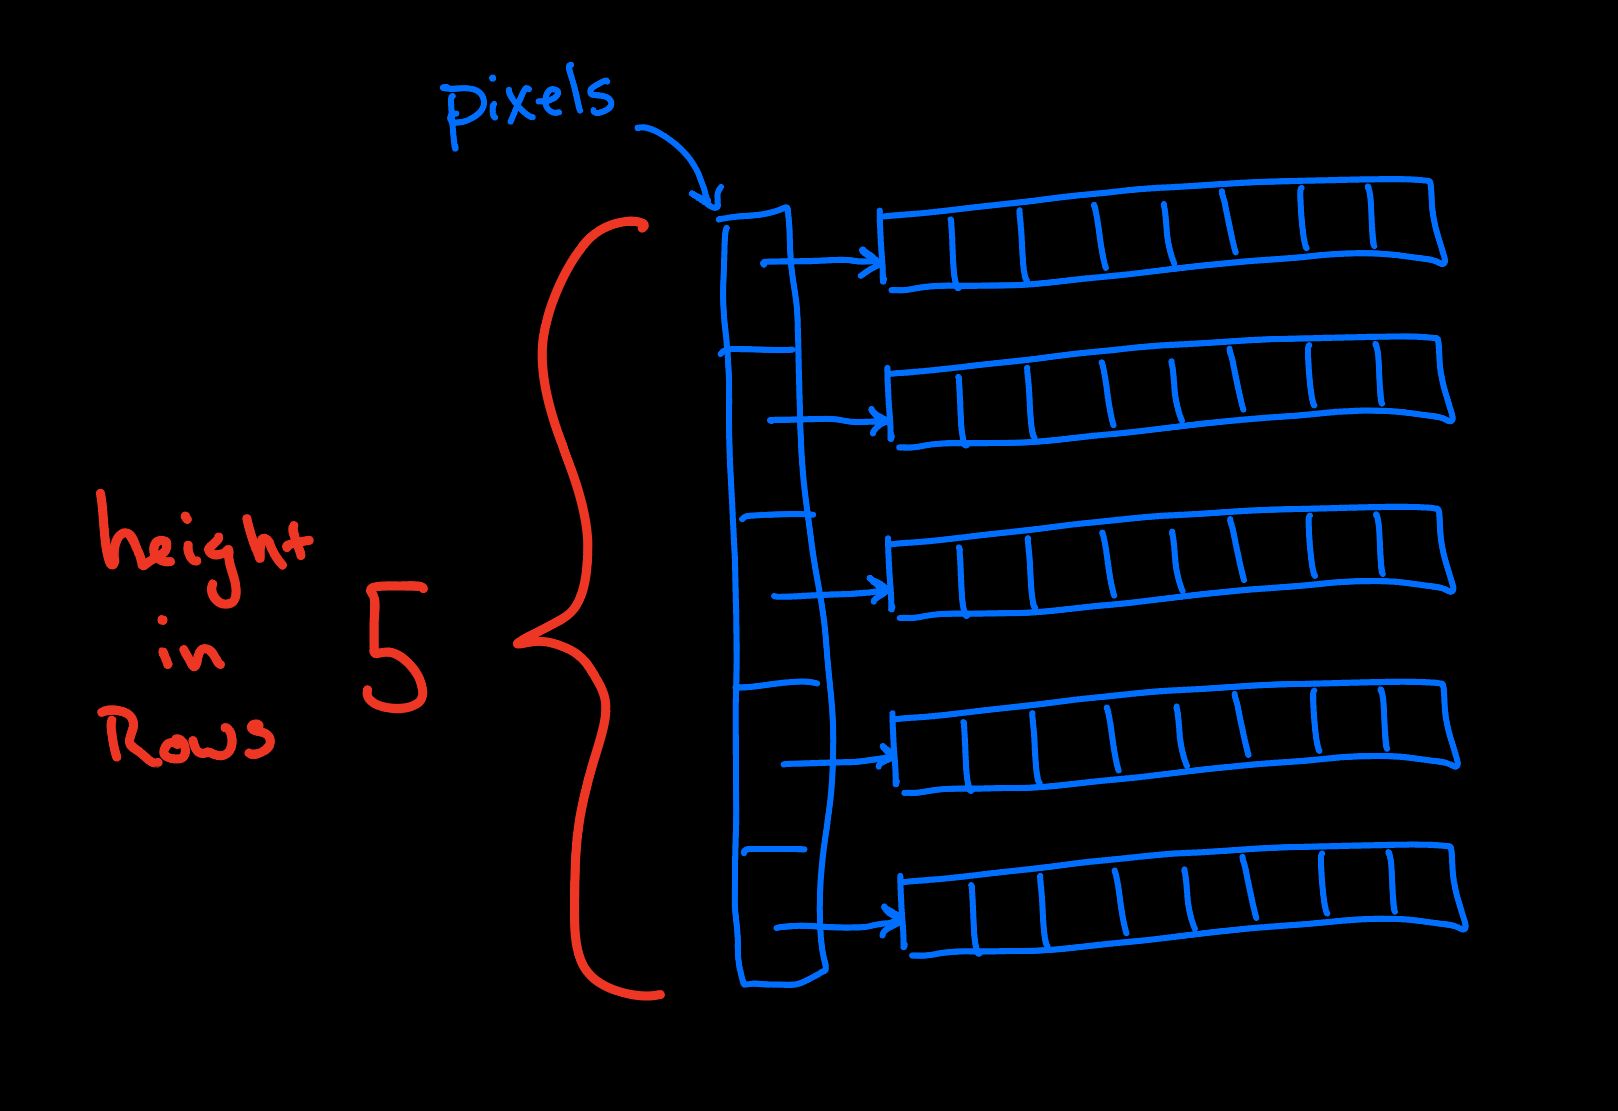 pixels
height
in
Rows
5